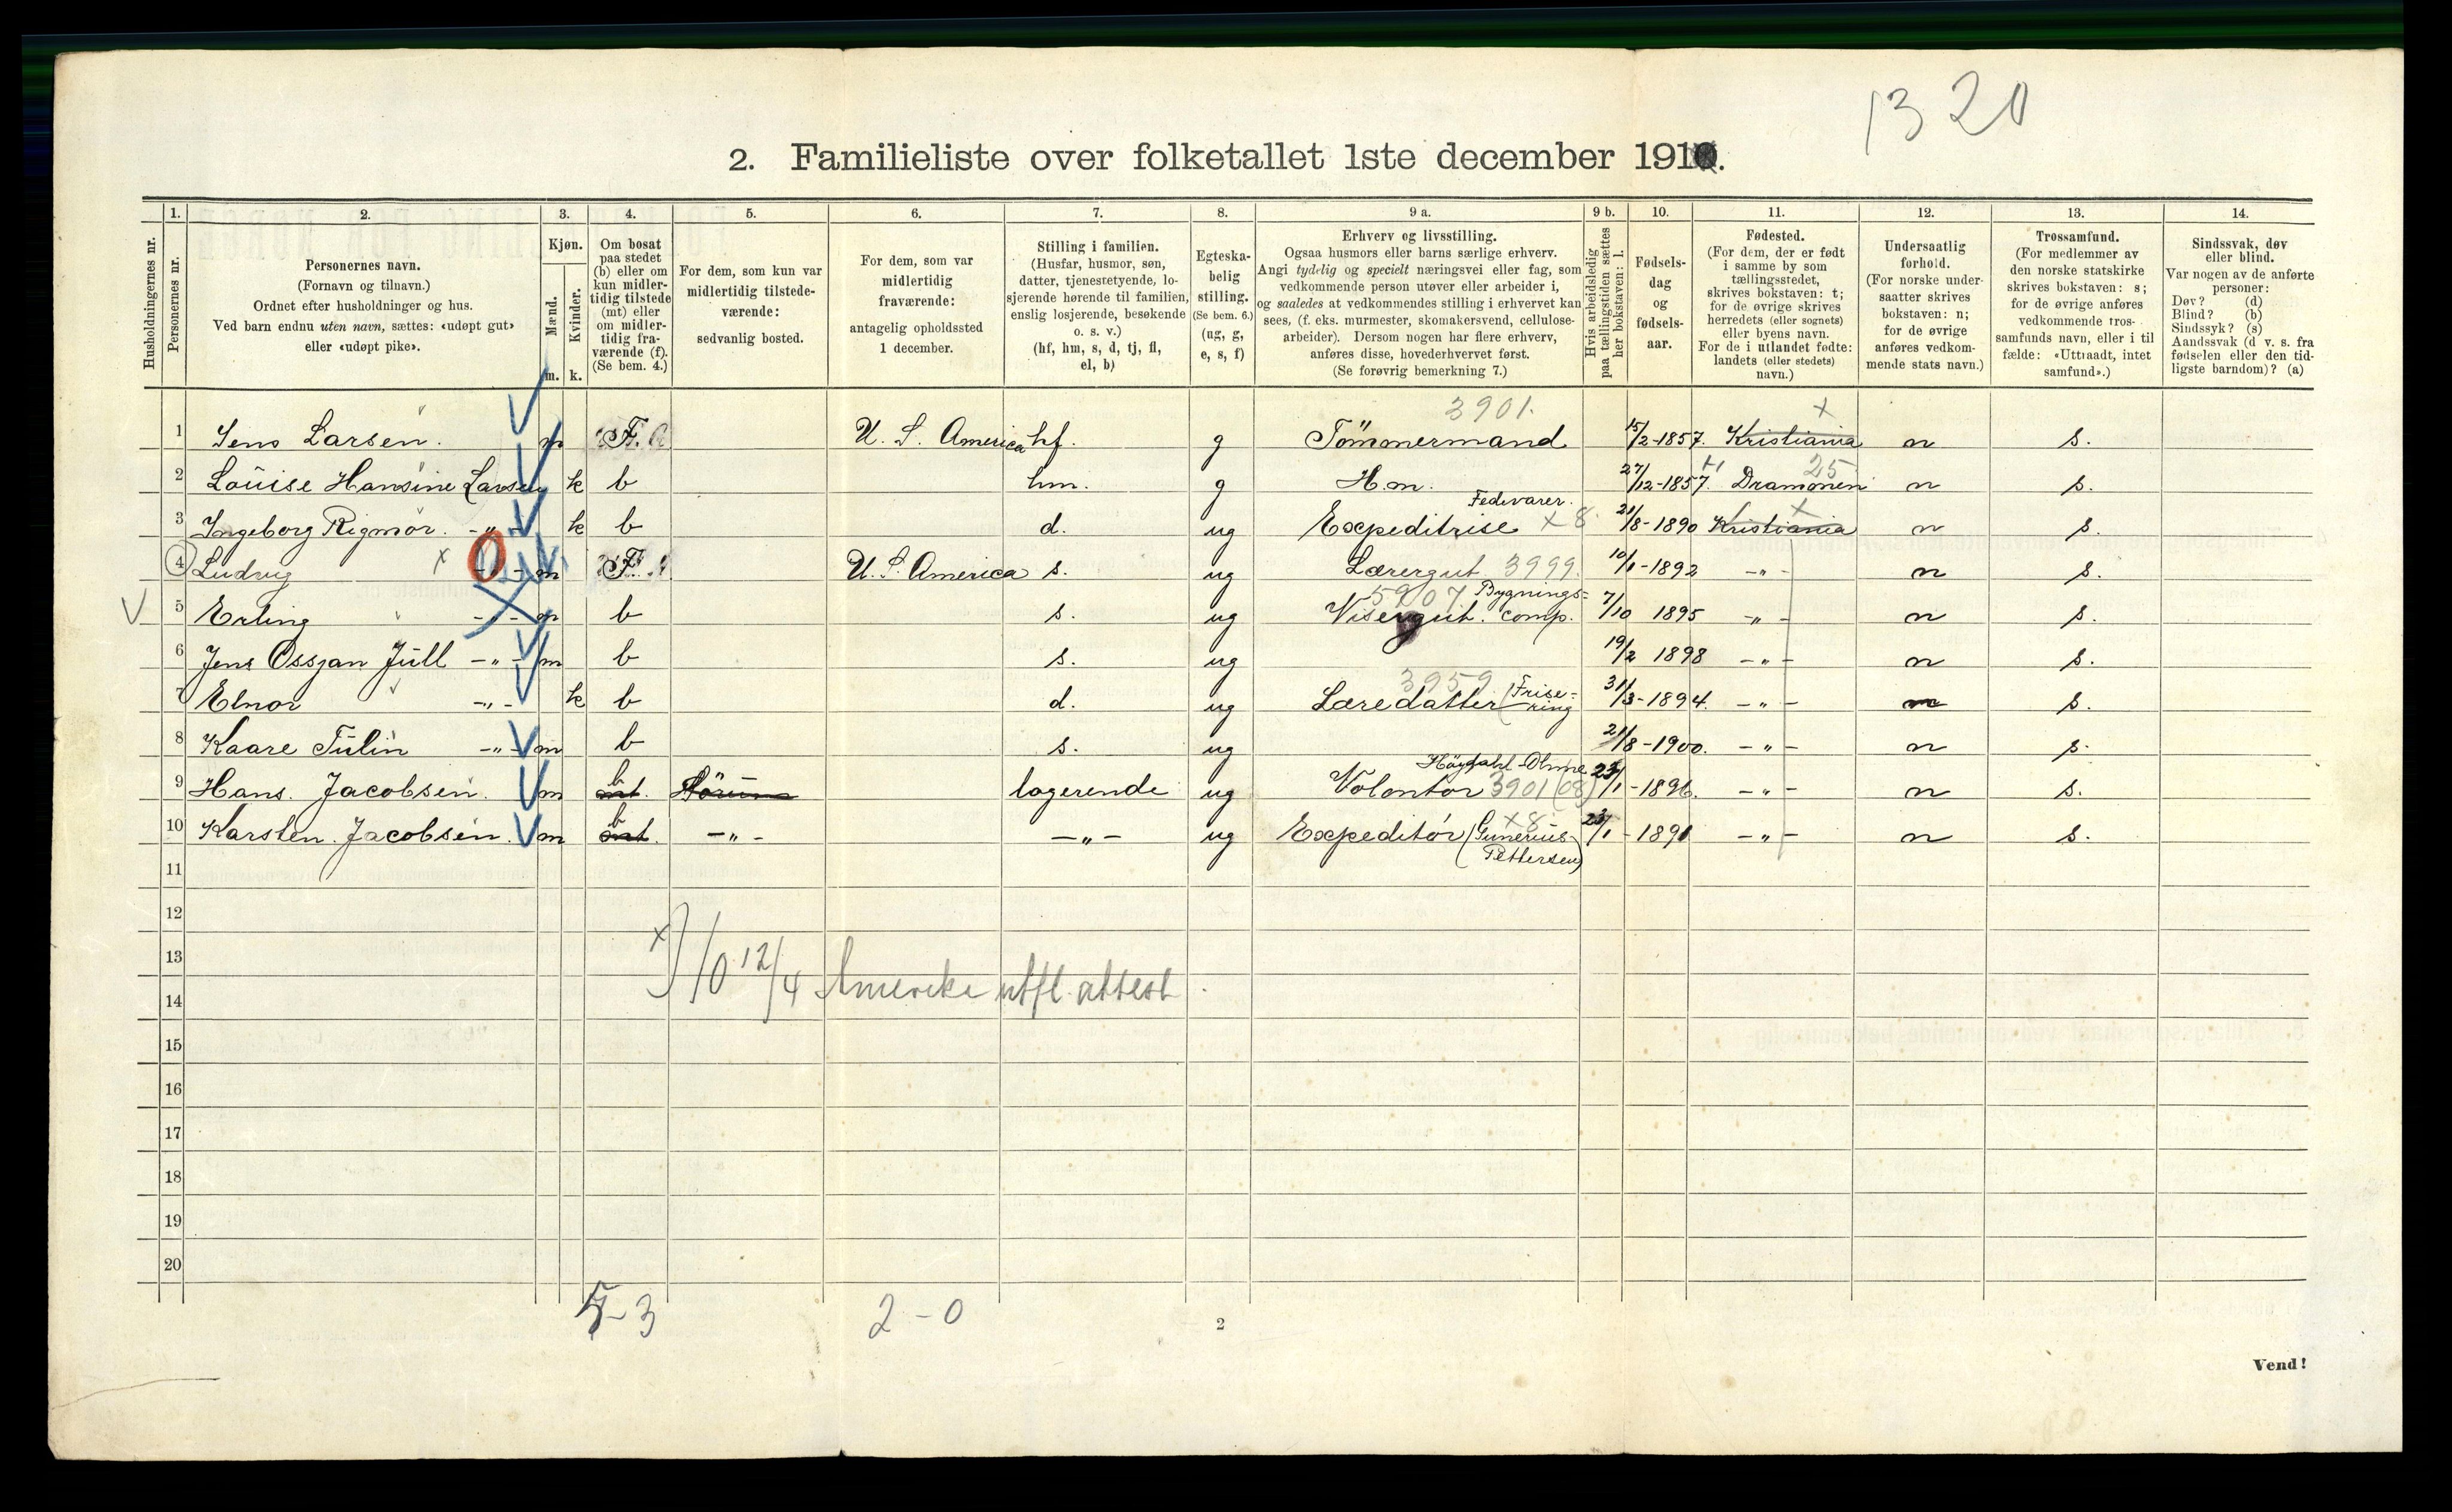 1320
2. Familieliste over folketallet 1ste december 1910.
Husholdningernes nr.
1.
Personernes nr.
2.
Personernes navn.
(Fornavn og tilnavn.)
Ordnet efter husholdninger og hus.
Ved barn endnu uten navn, sættes: «udøpt gut»
eller «udøpt pike».
3.
Kjøn.
Mænd.
Kvinder.
m. k.
4.
Om bosat
paa stedet
(b) eller om
kun midler-
tidig tilstede
(mt) eller
om midler-
tidig fra-
værende (f).
(Se bem. 4.)
5.
For dem, som kun var
midlertidig tilstede-
værende:
sedvanlig bosted.
6.
For dem, som var
midlertidig
fraværende:
antagelig opholdssted
1 december.
7.
Stilling i familien.
(Husfar, husmor, søn,
datter, tjenestetyende, lo-
sjerende hørende til familien,
enslig losjerende, besøkende
o. s. v.)
(hf, hm, s, d, tj, fl,
el, b)
8.
Egteska-
belig
stilling.
(Se bem. 6.)
(ug, g,
e, s, f)
9 a.
Erhverv og livsstilling.
Ogsaa husmors eller barns særlige erhverv.
Angi tydelig og specielt næringsvei eller fag, som
vedkommende person utøver eller arbeider i,
og saaledes at vedkommendes stilling i erhvervet kan
sees, (f. eks. murmester, skomakersvend, cellulose-
arbeider). Dersom nogen har flere erhverv,
anføres disse, hovederhvervet først.
(Se forøvrig bemerkning 7.)
9 b.
Hvis arbeidsledig
paa tællingstiden sættes
her bokstaven: l.
10.
Fødsels-
dag
og
fødsels-
aar.
11.
Fødested.
(For dem, der er født
i samme by som
tællingsstedet,
skrives bokstaven: t;
for de øvrige skrives
herredets (eller sognets)
eller byens navn.
For de i utlandet fødte:
landets (eller stedets)
navn.)
12.
Undersaatlig
forhold.
(For norske under-
saatter skrives
bokstaven: n;
for de øvrige
anføres vedkom-
mende stats navn.)
13.
Trossamfund.
(For medlemmer av
den norske statskirke
skrives bokstaven: s;
for de øvrige anføres
vedkommende tros-
samfunds navn, eller i til
fælde: «Uttraadt, intet
samfund».)
14.
Sindssvak, døv
eller blind.
Var nogen av de anførte
personer:
Døv? (d)
Blind? (b)
Sindssyk? (s)
Aandssvak (d v. s. fra
fødselen eller den tid-
ligste barndom)? (a)
3901. x
1 Jens Larsen. m F. U. S. America hf. g Tömmermand 15/2-1857. Kristiania n s.
25
2 Louise Hansine Larsen k b hm. g H.m. 27/12-1857. Drammen n s.
Fedevarer. x
3 Ingeborg Rigmor. -"- k b d. ug Expeditrise x 8 21/8-1890 Kristiania n s.
4 Ludvig x -"- m F. U. S. America s. ug Lærergut 3999. 10/1-1892 -"- n s.
5907 Bygnings-
5 Erling -"- m b s. ug Visergut. comp. 7/10 1895 -"- n s.
6 Jens Ossian Jull -"- m b s. ug 19/2 1898 -"- n s.
3959 (Frise-
7 Elnor -"- k b d. ug Læredatter ring 31/3-1894. -"- n s.
8 Kaare Tulin -"- m b s. ug 21/8-1900. -"- n s.
b
9 Hans. Jacobsen. m mt. logerende ug Volontør 3901 (08) 23/1-1896. -"- n s.
b x8
10 Karsten. Jacobsen. m mt. -"- -"- ug Expeditör (Gunerius 23/1-1891 -"- n s.
Pettersen)
11
12
13
x) 10 12/4 Amerika utfl. attest
14
15
16
17
18
19
20
5-3 2-0
2
Vend!